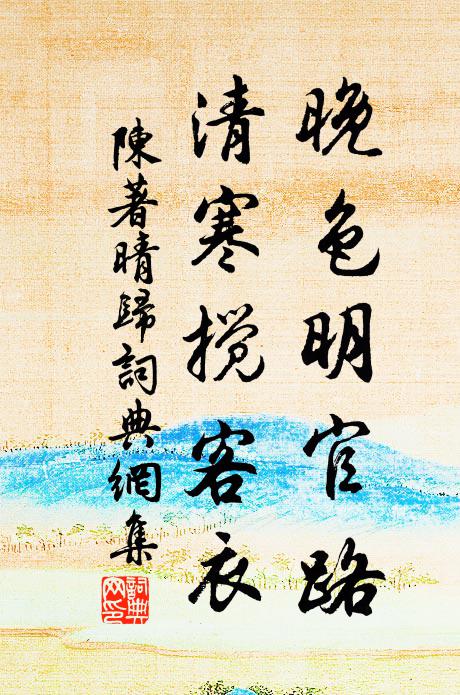 晚色明官路
清寒攪客衣
陳著晴歸詞典網集
詞典網印